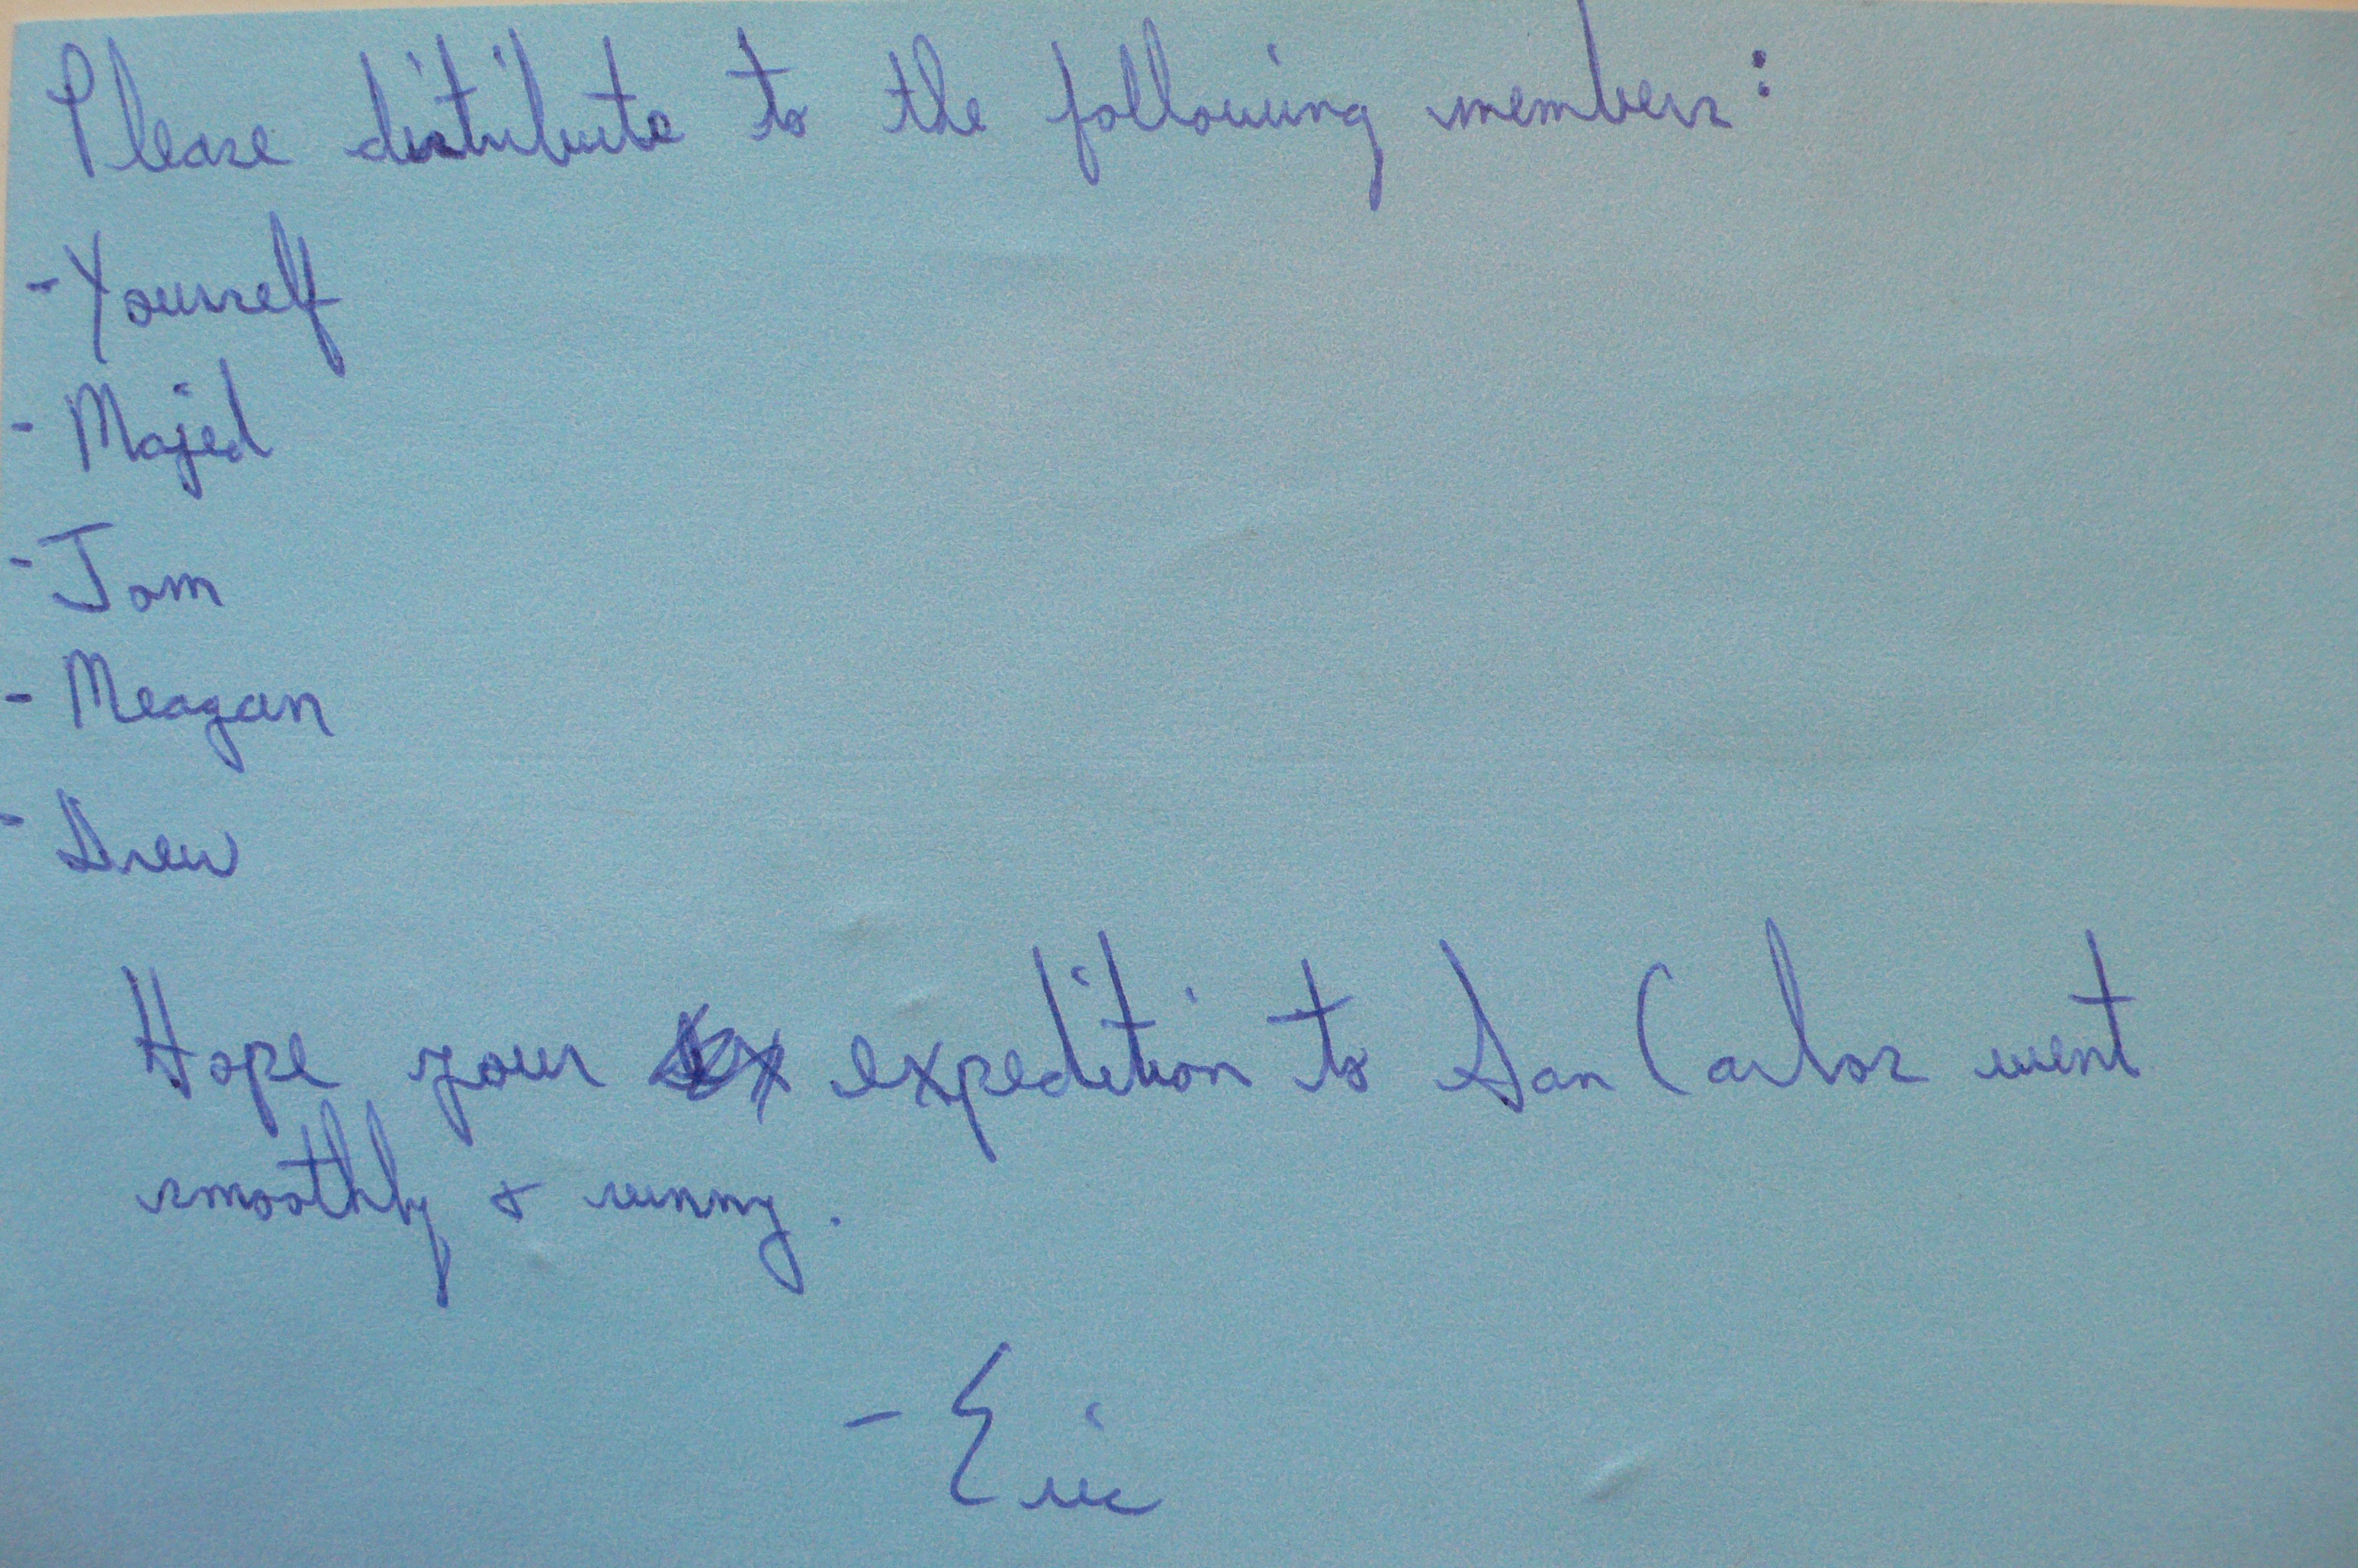 Please distribute to the following members:
- Yourself
- Majed
- Tom
- Meagan
- Drew
Hope your expedition to San Carlos went
smoothly & sunny.
- Eric